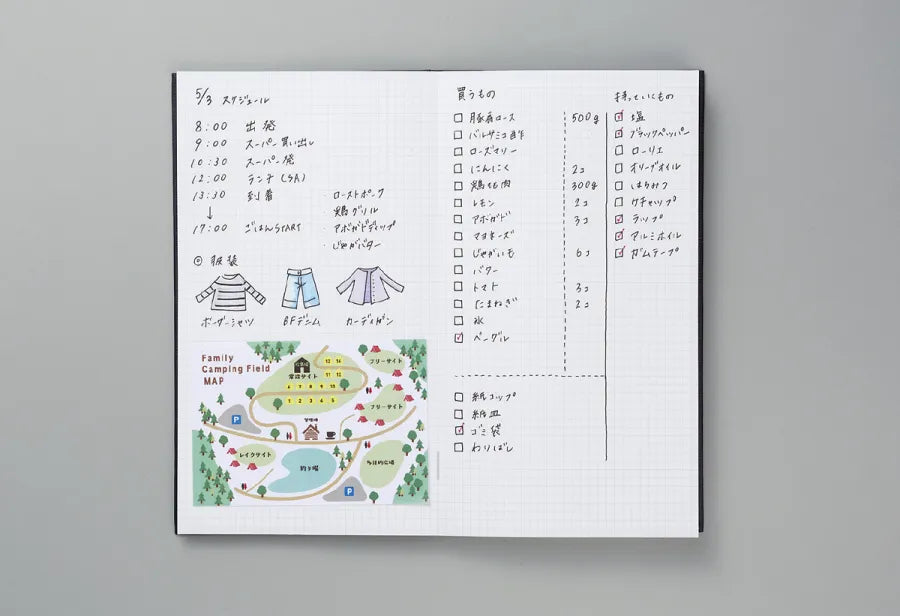 5/3 スケジュール
8:00 出発
9:00 スーパー買い出し
10:30 スーパー発
12:00 ランチ(SA)
13:30 到着
↓
17:00 ごはんSTART
・ローストポーク
・鶏グリル
・アボガドディップ
・じゃがバター
◎ 服装
ボーダーシャツ BFデニム カーディガン
Family
Camping Field
MAP
フリーサイト
常設サイト
13 14
11 12
6 7 8 9 10
1 2 3 4 5
フリーサイト
P
管理棟
レイクサイト
釣り場
多目的広場
P
買うもの
豚肩ロース 500g
バルサミコ酢
ローズマリー
にんにく 2コ
鶏もも肉 300g
レモン 2コ
アボガド 3コ
マヨネーズ
じゃがいも 6コ
バター
トマト 3コ
たまねぎ 2コ
氷
ベーグル
紙コップ
紙皿
ゴミ袋
わりばし
持っていくもの
塩
ブラックペッパー
ローリエ
オリーブオイル
はちみつ
ケチャップ
ラップ
アルミホイル
ガムテープ